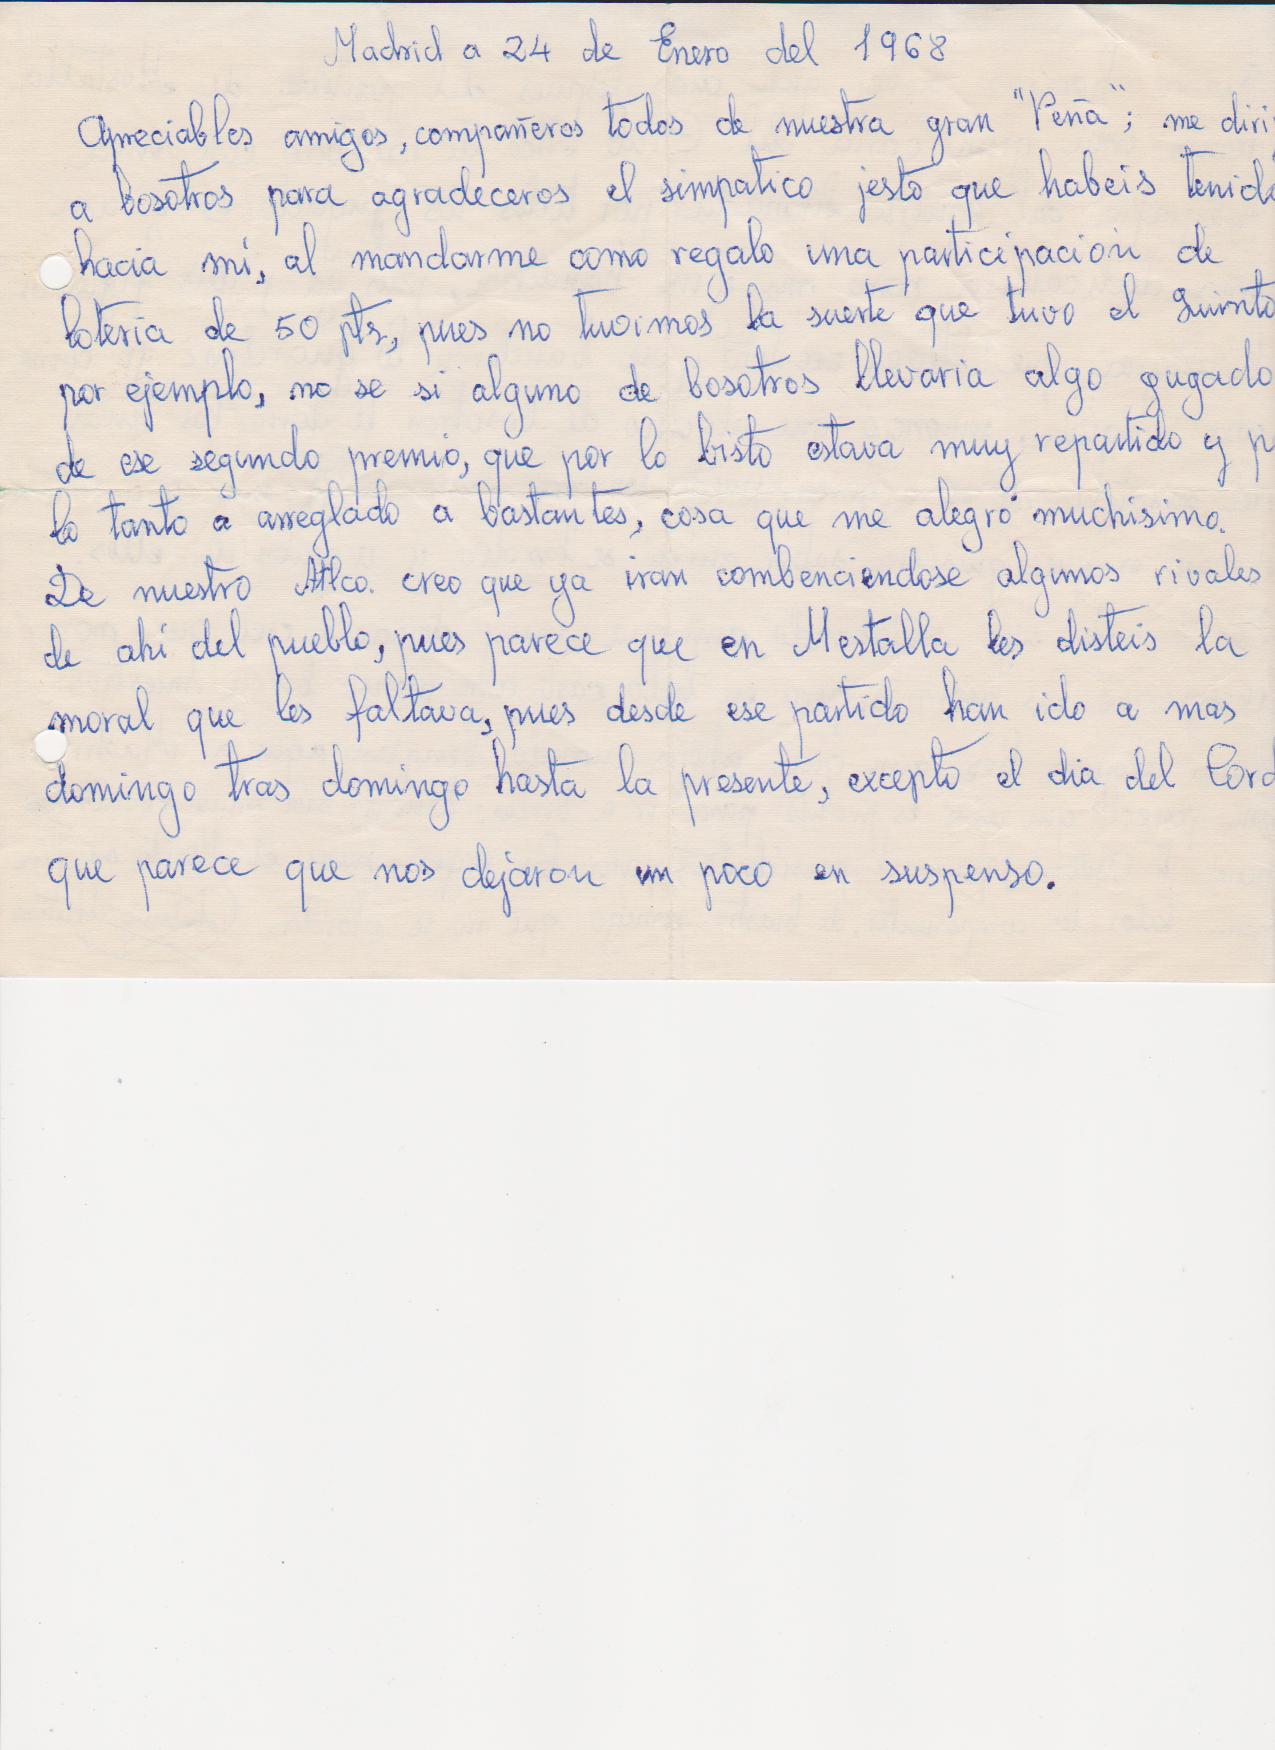 Madrid a 24 de Enero del 1968
Apreciables amigos, compañeros todos de nuestra gran "Peña"; me diri
a bosotros para agradeceros el simpatico jesto que habeis tenido
hacia mí, al mandarme como regalo una participación de
loteria de 50 pts, pues no tuvimos la suerte que tuvo el
por ejemplo, no se si alguno de bosotros llevaria algo gugado
de ese segundo premio, que por lo bisto estava muy repartido y p
lo tanto a arreglado a bastantes, cosa que me alegró muchisimo.
De nuestro Atlco. creo que ya iran combenciendose algunos rivales
de ahi del pueblo, pues parece que en Mestalla les disteis la
moral que les faltava, pues desde ese partido han ido a mas
domingo tras domingo hasta la presente, excepto el dia del Cord
que parece que nos dejaron un poco en suspenso.